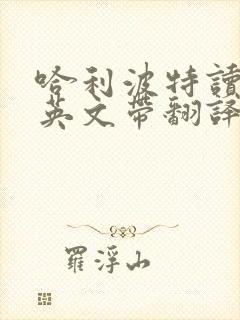 哈利波特讀
英文帶翻譯
羅浮山